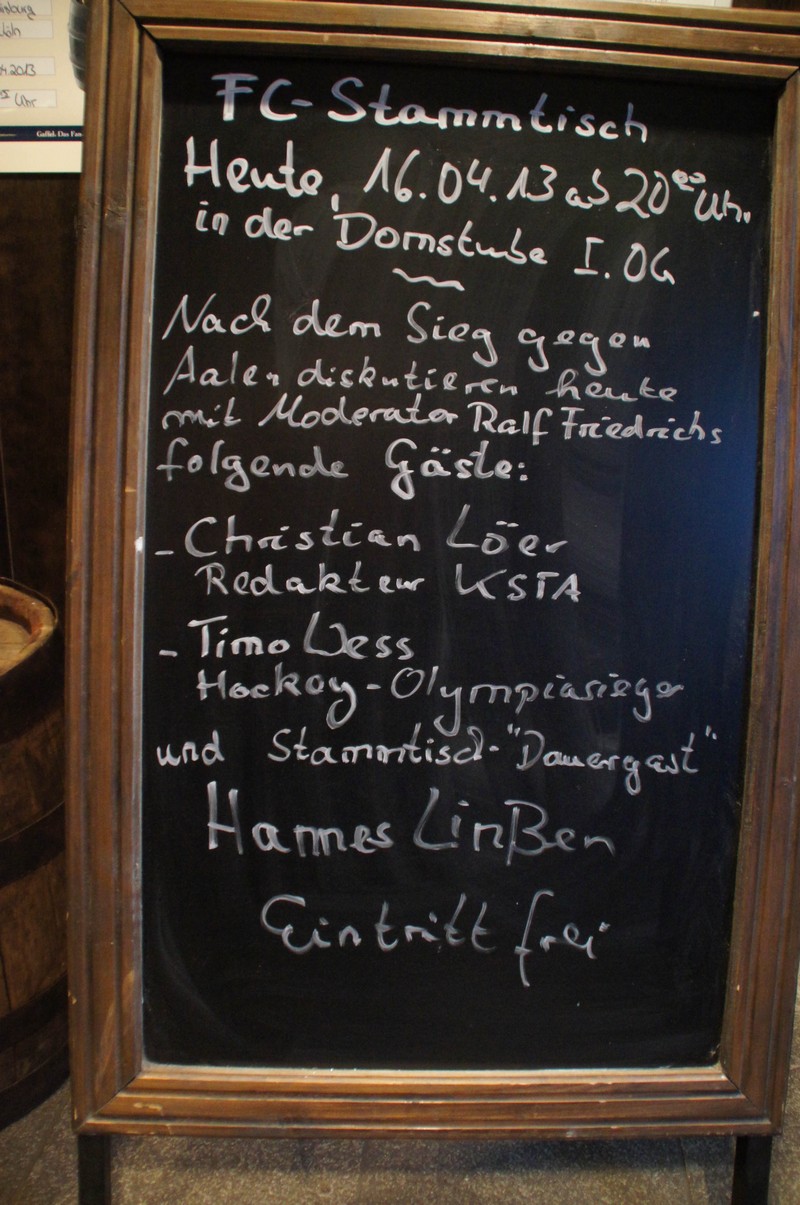 isburg
Köln
4.2013
Uhr
Gaffel. Das Fan
FC-Stammtisch
Heute, 16.04.13 ab 20⁰⁰ Uhr.
in der Domstube I. OG
Nach dem Sieg gegen
Aalen diskutieren heute
mit Moderator Ralf Friedrichs
folgende Gäste:
- Christian Löer
Redakteur KSTA
- Timo Wess
Hockey-Olympiasieger
und Stammtisch-"Dauergast"
Hannes Linßen
Eintritt frei